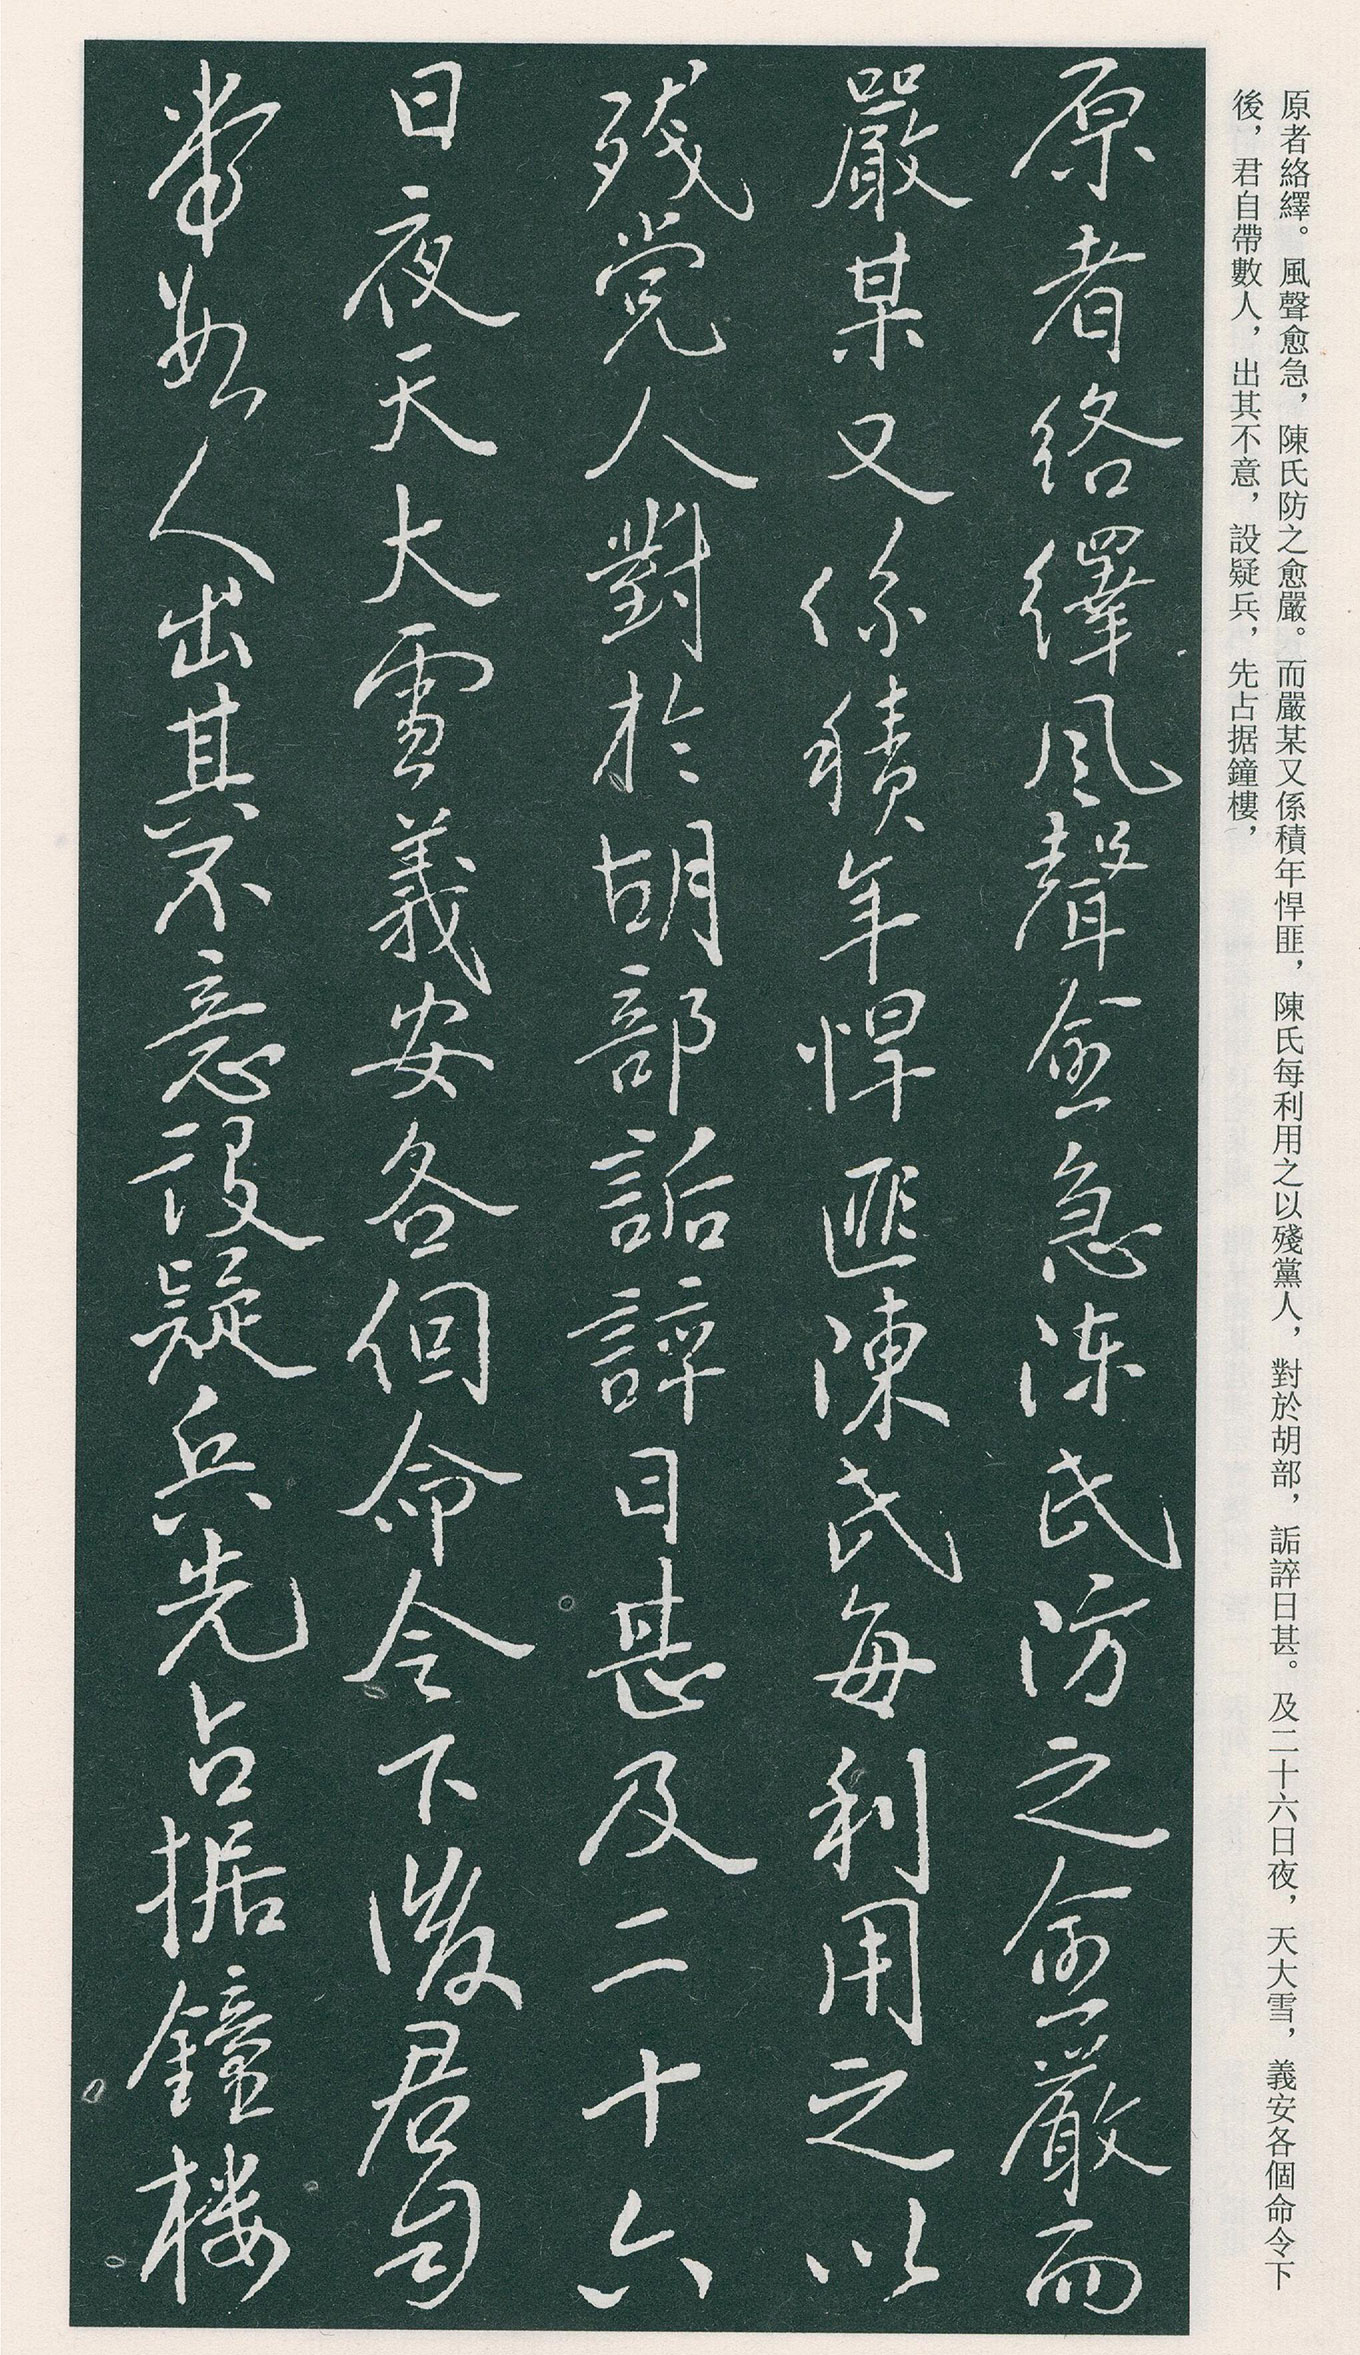 原者絡繹。風聲愈急，陳氏防之愈嚴。而嚴某又係積年悍匪，陳氏每利用之以殘黨人，對於胡部，詬誶日甚。及二十六日夜，天大雪，義安各個命令下
後，君自帶數人，出其不意，設疑兵，先占据鐘樓，
原者絡繹風聲愈急陳氏防之愈嚴而
嚴某又係積年悍匪陳氏每利用之以
殘党人對於胡部詬誶日甚及二十六
日夜天大雪義安各個命令下後君自
帶數人出其不意設疑兵先占据鐘樓